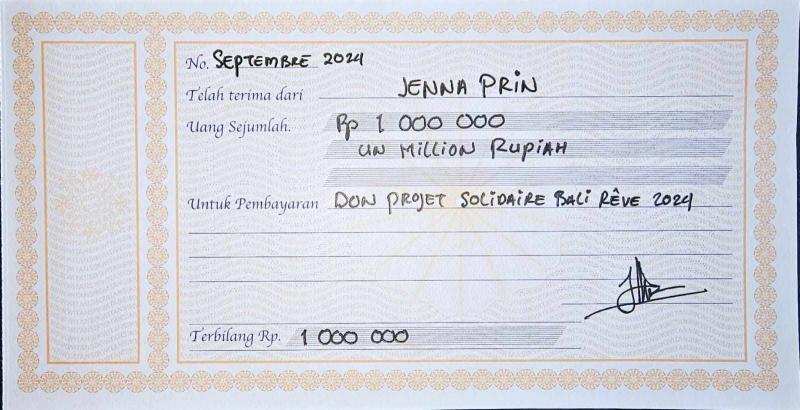 No. SEPTEMBRE 2024
Telah terima dari JENNA PRIN
Uang Sejumlah. Rp 1 000 000
UN MILLION RUPIAH
Untuk Pembayaran DON PROJET SOLIDAIRE BALI RÊVE 2024
Terbilang Rp. 1 000 000